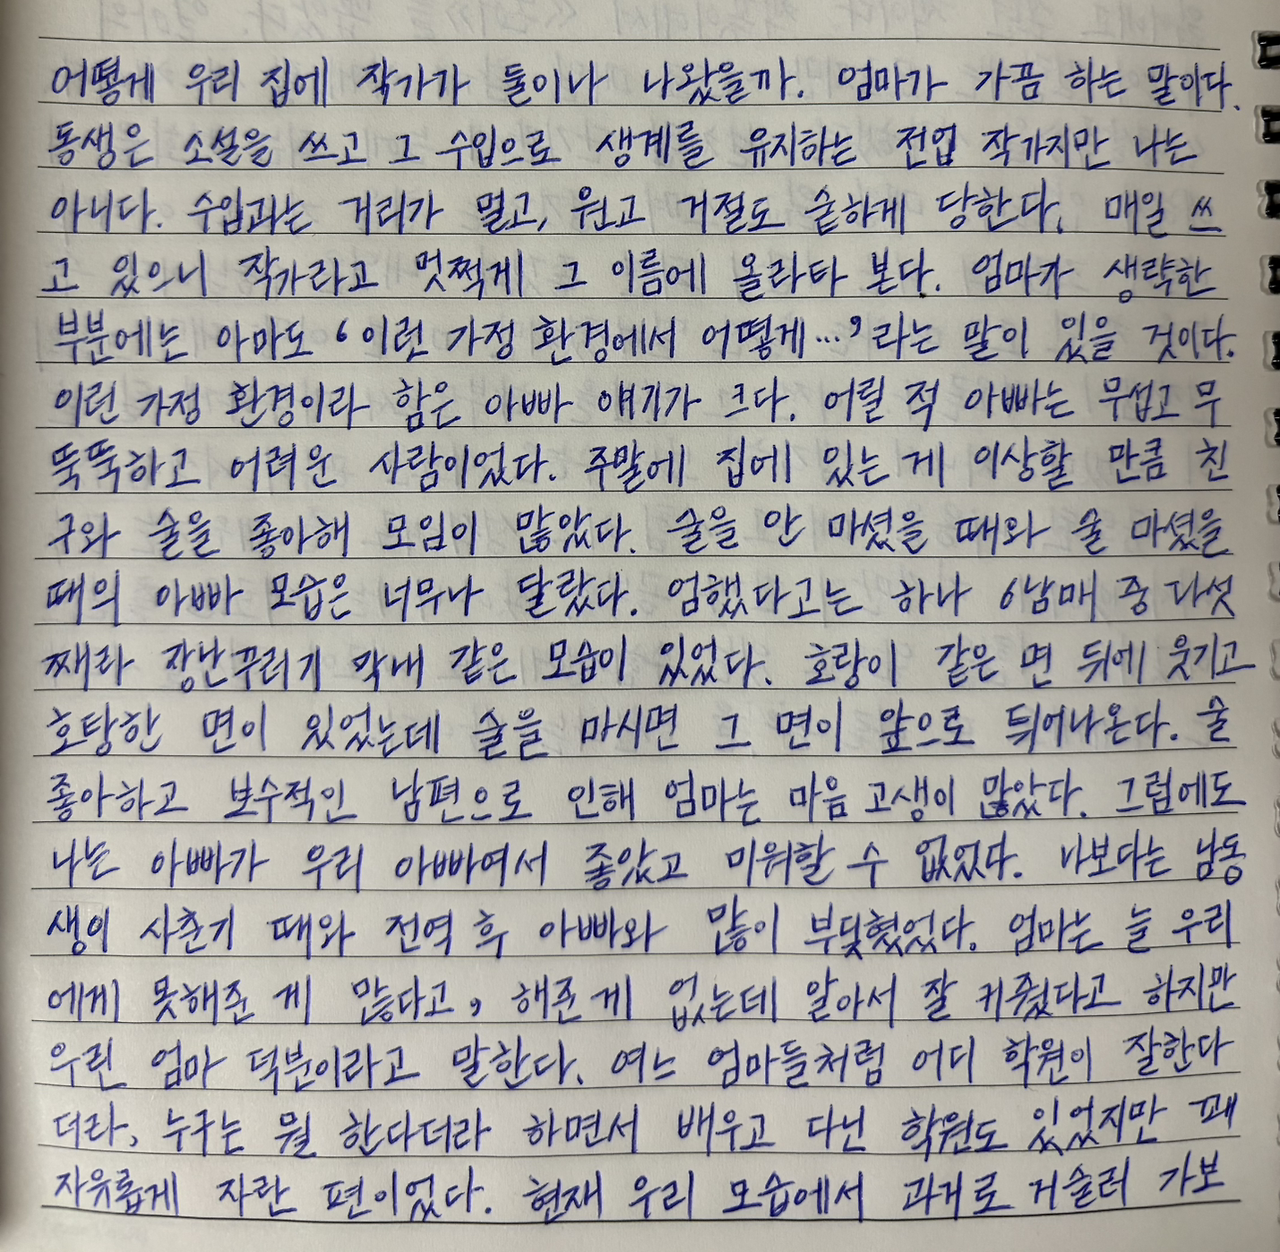 어떻게 우리 집에 작가가 둘이나 나왔을까. 엄마가 가끔 하는 말이다.
동생은 소설을 쓰고 그 수입으로 생계를 유지하는 전업 작가지만 나는
아니다. 수입과는 거리가 멀고, 원고 거절도 숱하게 당한다. 매일 쓰
고 있으니 작가라고 멋쩍게 그 이름에 올라타 본다. 엄마가 생략한
부분에는 아마도 ‘이런 가정 환경에서 어떻게…’라는 말이 있을 것이다.
이런 가정 환경이라 함은 아빠 얘기가 크다. 어릴 적 아빠는 무섭고 무
뚝뚝하고 어려운 사람이었다. 주말에 집에 있는 게 이상할 만큼 친
구와 술을 좋아해 모임이 많았다. 술을 안 마셨을 때와 술 마셨을
때의 아빠 모습은 너무나 달랐다. 엄했다고는 하나 6남매 중 다섯
째라 장난꾸러기 막내 같은 모습이 있었다. 호랑이 같은 면 뒤에 웃기고
호탕한 면이 있었는데 술을 마시면 그 면이 앞으로 튀어나온다. 술
좋아하고 보수적인 남편으로 인해 엄마는 마음 고생이 많았다. 그럼에도
나는 아빠가 우리 아빠여서 좋았고 미워할 수 없었다. 나보다는 남동
생이 사춘기 때와 전역 후 아빠와 많이 부딪혔었다. 엄마는 늘 우리
에게 못해준 게 많다고, 해준 게 없는데 알아서 잘 커줬다고 하지만
우린 엄마 덕분이라고 말한다. 여느 엄마들처럼 어디 학원이 잘한다
더라, 누구는 뭘 한다더라 하면서 배우고 다닌 학원도 있었지만 꽤
자유롭게 자란 편이었다. 현재 우리 모습에서 과거로 거슬러 가보